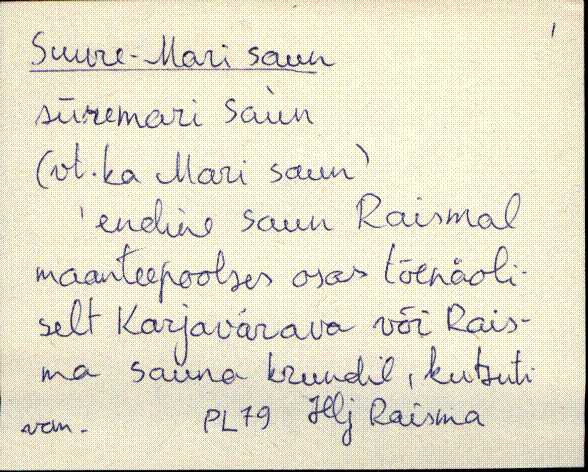 1
Suure-Mari saun
sūremari saùn
(vt. ka Mari saun)
'endine saun Raismal
maanteepoolses osas tõenäoli-
selt Karjavärava või Rais-
ma sauna krundil, kutsuti
van. PL79 Hlj Raisma